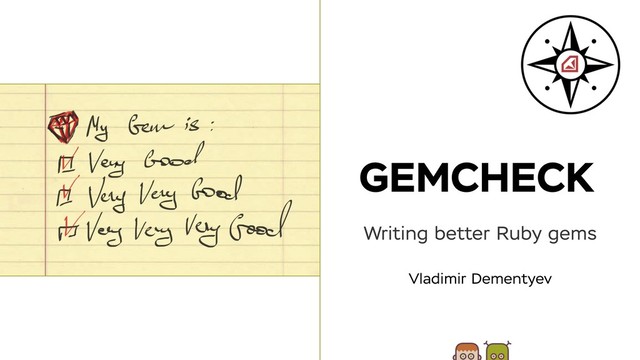 My Gem is:
Very Good
Very Very Good
Very Very Very Good
GEMCHECK
Writing better Ruby gems
Vladimir Dementyev